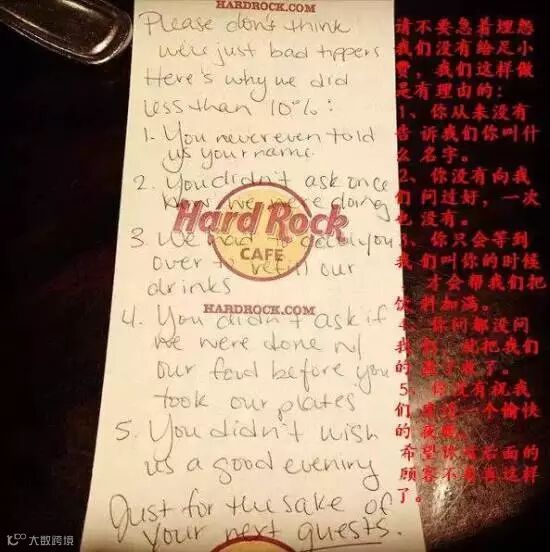 HARDROCK.COM
Please don't think
we're just bad tippers
Here's why we did
less than 10%:
1. You never even told
us your name.
2. You didn't ask once
how we were doing
Hard Rock
CAFE
3. We had to call you
over to refill our
drinks
HARDROCK.COM
4. You didn't ask if
we were done w/
our food before you
took our plates
5. You didn't wish
us a good evening
Just for the sake of
your next guests.
请不要急着埋怨
我们没有给足小
费，我们这样做
是有理由的：
1、你从来没有
告诉我们你叫什
么名字。
2、你没有向我
们问过好，一次
也没有。
3、你只会等到
我们叫你的时候
才会帮我们把
饮料加满。
4、你问都没问
我们，就把我们
的盘子收了。
5、你没有祝我
们度过一个愉快
的夜晚。
希望你对后面的
顾客不会也这样
了。
大数跨境